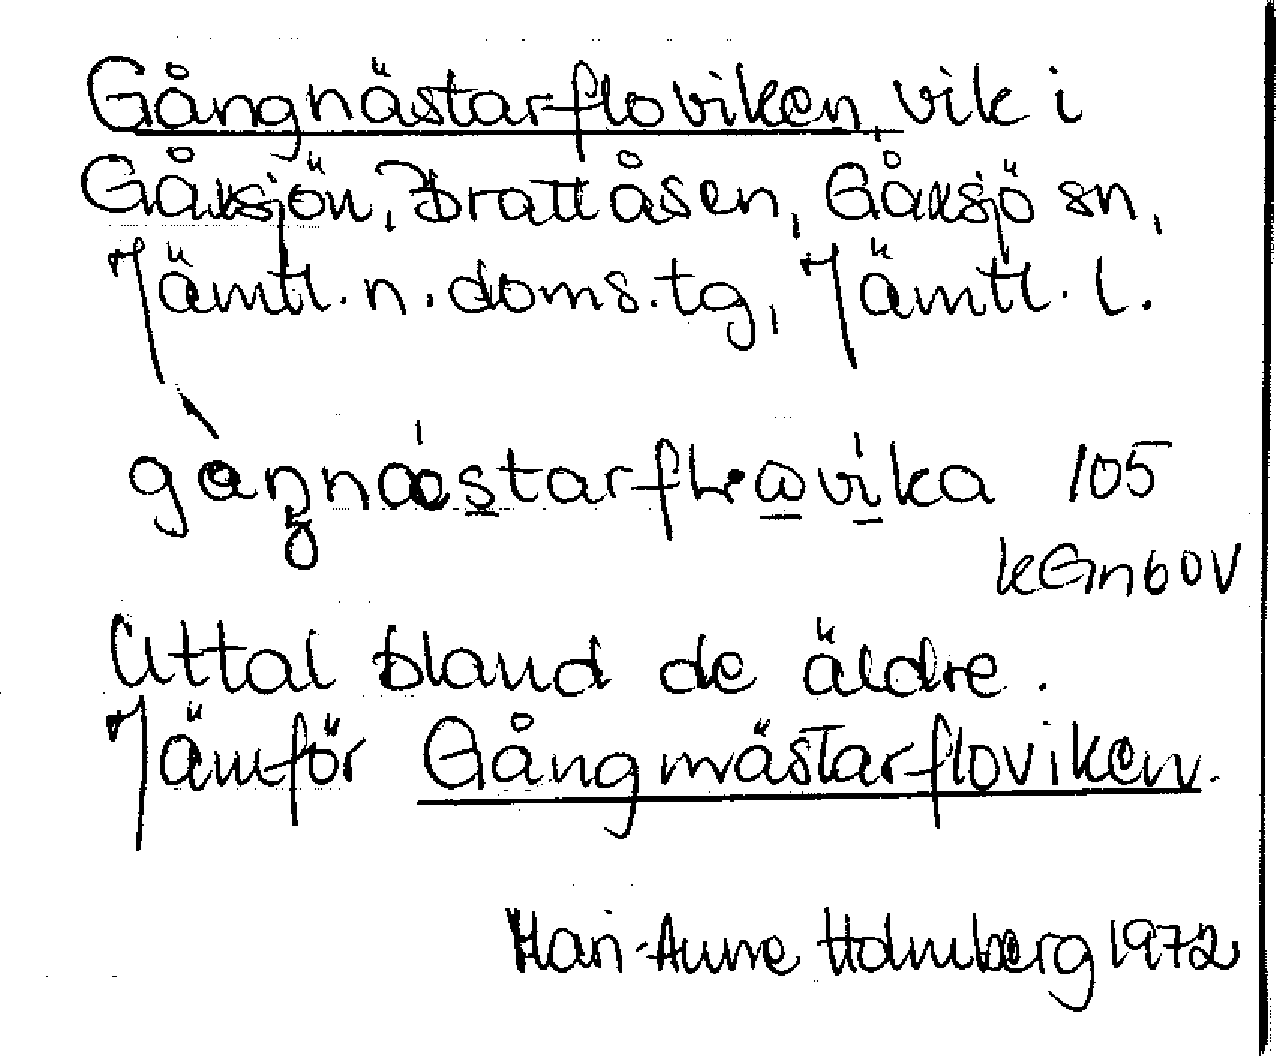 Gångnästarfloviken, vik i
Gåxsjön, Brattåsen, Gåxsjö sn,
Jämtl. n. doms.tg, Jämtl. l.
105
kGn60V
Uttal bland de äldre.
Jämför Gångmästarfloviken.
Mari-Anne Holmberg 1972